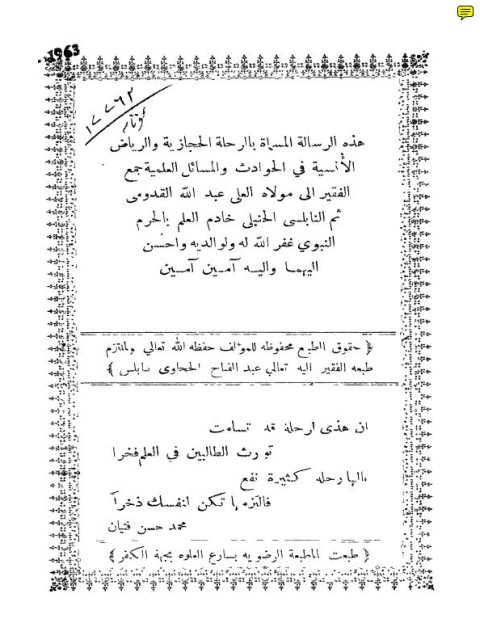 1963
١٧٧٦٣
هذه الرسالة المسماة بالرحلة الحجازية والرياض
الأنسية في الحوادث والمسائل العلمية جمع
الفقير الى مولاه العلى عبد الله القدومى
ثم النابلسى الحنبلى خادم العلم بالحرم
النبوي غفر الله له ولوالديه واحسن
اليهما واليه آمين آمين
﴿ حقوق الطبع محفوظه للمؤلف حفظه الله تعالي وملتزم
طبعه الفقير اليه تعالي عبد الفتاح الحجاوى بنابلس ﴾
ان هذى الرحلة قد تسامت
تورث الطالبين في العلم فخرا
يالها رحله كثيرة نفع
فالتزمها تكن لنفسك ذخراً
محمد حسن فتيان
﴿ طبعت بالمطبعة الرضويه بسارع العلوه بجهة الكفر ﴾